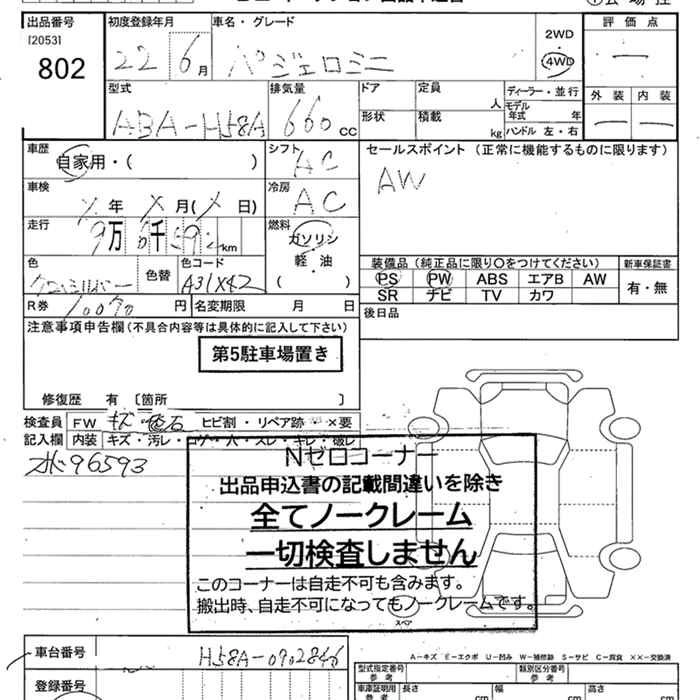 出品番号 初度登録年月 車名・グレード 評価点
[2053]
802
22 6月 パジェロミニ 2WD 4WD
型式 排気量 ドア 定員 人 ディーラー・並行 外装 内装
ABA-H58A 660 CC 形状 積載 kg モデル年式 年 ハンドル 左・右
車歴 シフト セールスポイント (正常に機能するものに限ります)
自家用・( ) AC AW
車検 年 月( 日) 冷房 AC
走行 9万 千 km 燃料
ガソリン
軽・油
( )
装備品 (純正品に限り○をつけてください) 新車保証書
PS PW ABS エアB AW 有・無
SR ナビ TV カワ
色 色替 色コード
A31X42
後日品
R券 円 名変期限 月 日
注意事項申告欄(不具合内容等は具体的に記入して下さい)
第5駐車場置き
修復歴 有 〔箇所 〕
検査員 FW キズ ヒビ割・リペア跡・×要
記入欄 内装 キズ・汚レ・コゲ・穴・スレ・キレ・破レ
96593
Nゼロコーナー
出品申込書の記載間違いを除き
全てノークレーム
一切検査しません
このコーナーは自走不可も含みます。
搬出時、自走不可になってもノークレームです。
スペア
A-キズ E-エクボ U-凹ミ W-補修跡 S-サビ C-腐食 XX-交換済
車台番号 H58A-0902846
型式指定番号 参考 類別区分番号 参考
登録番号
車庫証明用 参考 長さ cm 幅 cm 高さ cm